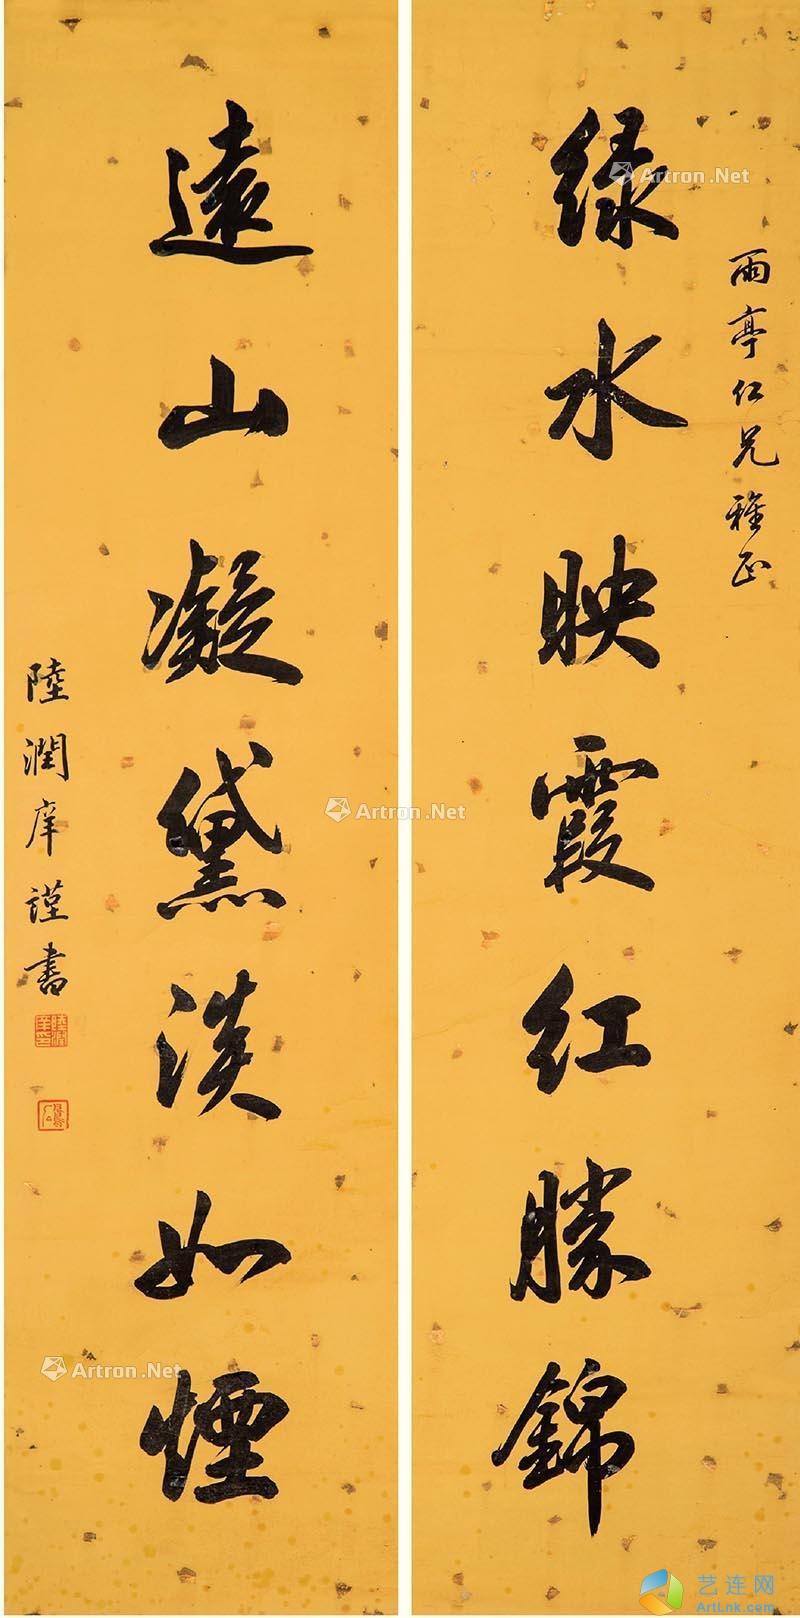 雨亭仁兄雅正
綠水映霞紅勝錦
遠山凝黛淡如煙
陸潤庠謹書
Artron.Net
Artron.Net
Artron.Net
艺连网
ArtLnk.com